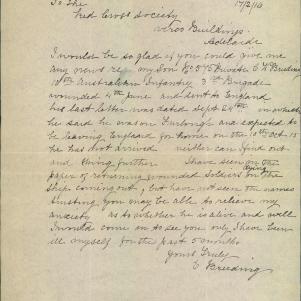 To The 17/2/16
Red Cross Society
Adelaide
I would be so glad if you could give me
any news re my son Private C H Breeding
Australian Infantry 3rd Brigade
wounded 4th June and sent to England
his last letter was dated Sept 24th in which
he said he was on Furlong and expected to
be leaving England for home on the 10th Oct 15
he has not arrived neither can I find out
and thing further I have seen in the
paper of returning wounded Soldiers on the
Ship coming out, but have not seen the names
You may be able to relieve my
anxiety as to whether he is alive and well
I would come in to see you only I have been
ill myself for the past 5 months
Yours Truly
C Breeding